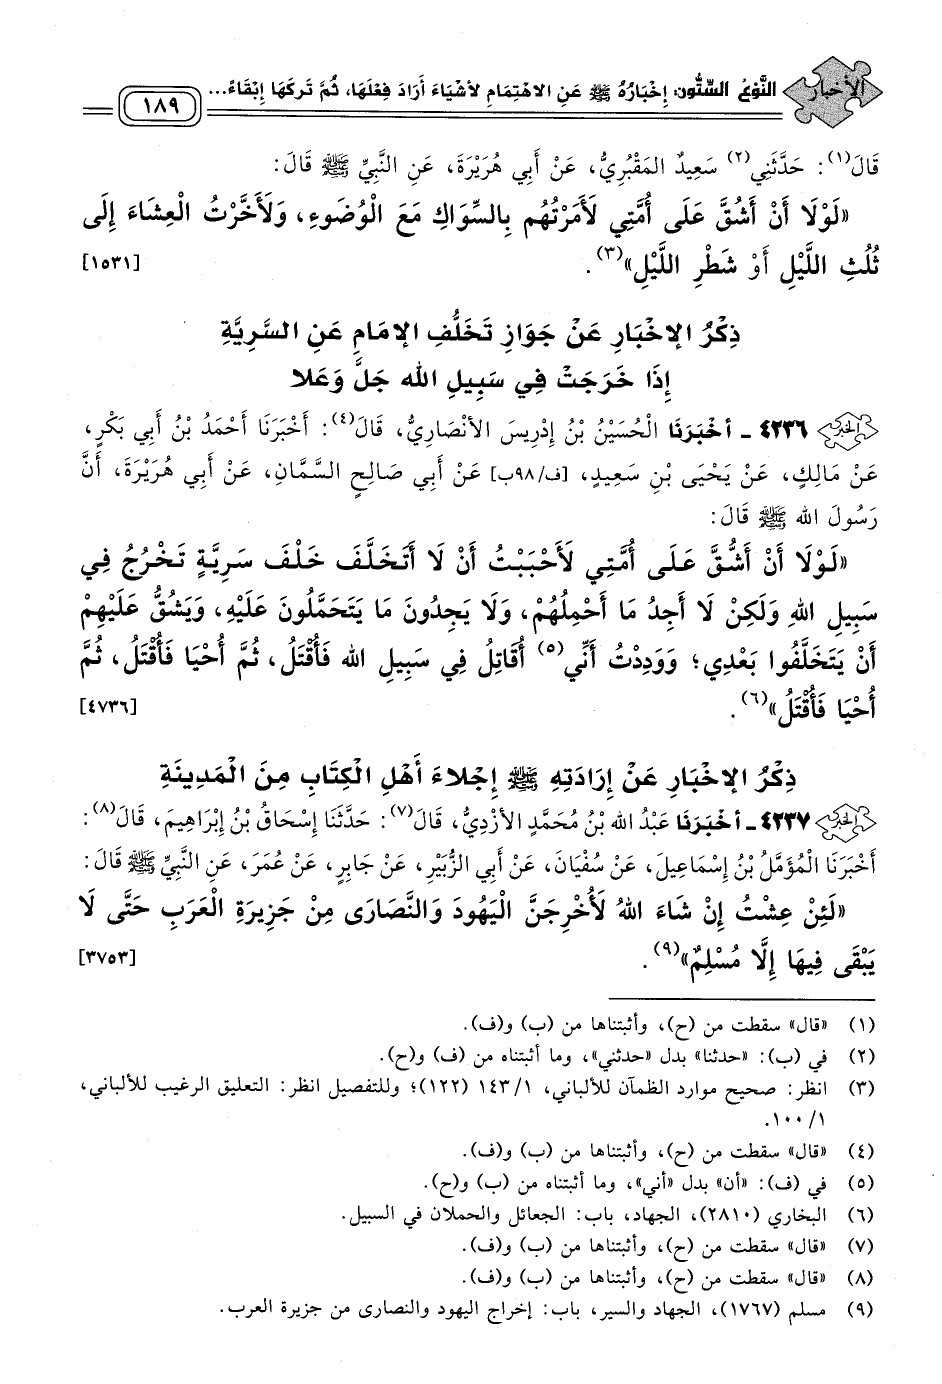 الأخبار
النَّوْعُ السِّتُّون: إِخْبَارُهُ ﷺ عَنِ الاهْتِمَامِ لأَشْيَاءَ أَرَادَ فِعْلَهَا، ثُمَّ تَرَكَهَا إِبْقَاءً...
١٨٩
قَالَ(١): حَدَّثَنِي(٢) سَعِيدٌ المَقْبُرِيُّ، عَنْ أَبِي هُرَيْرَةَ، عَنِ النَّبِيِّ ﷺ قَالَ:
«لَوْلَا أَنْ أَشُقَّ عَلَى أُمَّتِي لَأَمَرْتُهُم بِالسِّوَاكِ مَعَ الْوُضُوءِ، وَلَأَخَّرْتُ الْعِشَاءَ إِلَى
ثُلُثِ اللَّيْلِ أَوْ شَطْرِ اللَّيْلِ»(٣). [١٥٣١]
ذِكْرُ الإِخْبَارِ عَنْ جَوَازِ تَخَلُّفِ الإِمَامِ عَنِ السَّرِيَّةِ
إِذَا خَرَجَتْ فِي سَبِيلِ الله جَلَّ وَعَلا
الخبر ٤٢٣٦ - أَخْبَرَنَا الْحُسَيْنُ بْنُ إِدْرِيسَ الأَنْصَارِيُّ، قَالَ(٤): أَخْبَرَنَا أَحْمَدُ بْنُ أَبِي بَكْرٍ،
عَنْ مَالِكٍ، عَنْ يَحْيَى بْنِ سَعِيدٍ، [ف/٩٨ب] عَنْ أَبِي صَالِحٍ السَّمَّانِ، عَنْ أَبِي هُرَيْرَةَ، أَنَّ
رَسُولَ الله ﷺ قَالَ:
«لَوْلَا أَنْ أَشُقَّ عَلَى أُمَّتِي لَأَحْبَبْتُ أَنْ لَا أَتَخَلَّفَ خَلْفَ سَرِيَّةٍ تَخْرُجُ فِي
سَبِيلِ اللهِ وَلَكِنْ لَا أَجِدُ مَا أَحْمِلُهُمْ، وَلَا يَجِدُونَ مَا يَتَحَمَّلُونَ عَلَيْهِ، وَيَشُقُّ عَلَيْهِمْ
أَنْ يَتَخَلَّفُوا بَعْدِي؛ وَوَدِدْتُ أَنِّي(٥) أُقَاتِلُ فِي سَبِيلِ الله فَأُقْتَلُ، ثُمَّ أُحْيَا فَأُقْتَلُ، ثُمَّ
أُحْيَا فَأُقْتَلُ»(٦). [٤٧٣٦]
ذِكْرُ الإِخْبَارِ عَنْ إِرَادَتِهِ ﷺ إِجْلاءَ أَهْلِ الْكِتَابِ مِنَ الْمَدِينَةِ
الخبر ٤٢٣٧ - أَخْبَرَنَا عَبْدُ الله بْنُ مُحَمَّدٍ الأَزْدِيُّ، قَالَ(٧): حَدَّثَنَا إِسْحَاقُ بْنُ إِبْرَاهِيمَ، قَالَ(٨):
أَخْبَرَنَا الْمُؤَمَّلُ بْنُ إِسْمَاعِيلَ، عَنْ سُفْيَانَ، عَنْ أَبِي الزُّبَيْرِ، عَنْ جَابِرٍ، عَنْ عُمَرَ، عَنِ النَّبِيِّ ﷺ قَالَ:
«لَئِنْ عِشْتُ إِنْ شَاءَ اللهُ لَأُخْرِجَنَّ الْيَهُودَ وَالنَّصَارَى مِنْ جَزِيرَةِ الْعَرَبِ حَتَّى لَا
يَبْقَى فِيهَا إِلَّا مُسْلِمٌ»(٩). [٣٧٥٣]
(١) «قال» سقطت من (ح)، وأثبتناها من (ب) و(ف).
(٢) في (ب): «حدثنا» بدل «حدثني»، وما أثبتناه من (ف) و(ح).
(٣) انظر: صحيح موارد الظمآن للألباني، ١٤٣/١ (١٢٢)؛ وللتفصيل انظر: التعليق الرغيب للألباني،
١٠٠/١.
(٤) «قال» سقطت من (ح)، وأثبتناها من (ب) و(ف).
(٥) في (ف): «أن» بدل «أني»، وما أثبتناه من (ب) و(ح).
(٦) البخاري (٢٨١٠)، الجهاد، باب: الجعائل والحملان في السبيل.
(٧) «قال» سقطت من (ح)، وأثبتناها من (ب) و(ف).
(٨) «قال» سقطت من (ح)، وأثبتناها من (ب) و(ف).
(٩) مسلم (١٧٦٧)، الجهاد والسير، باب: إخراج اليهود والنصارى من جزيرة العرب.